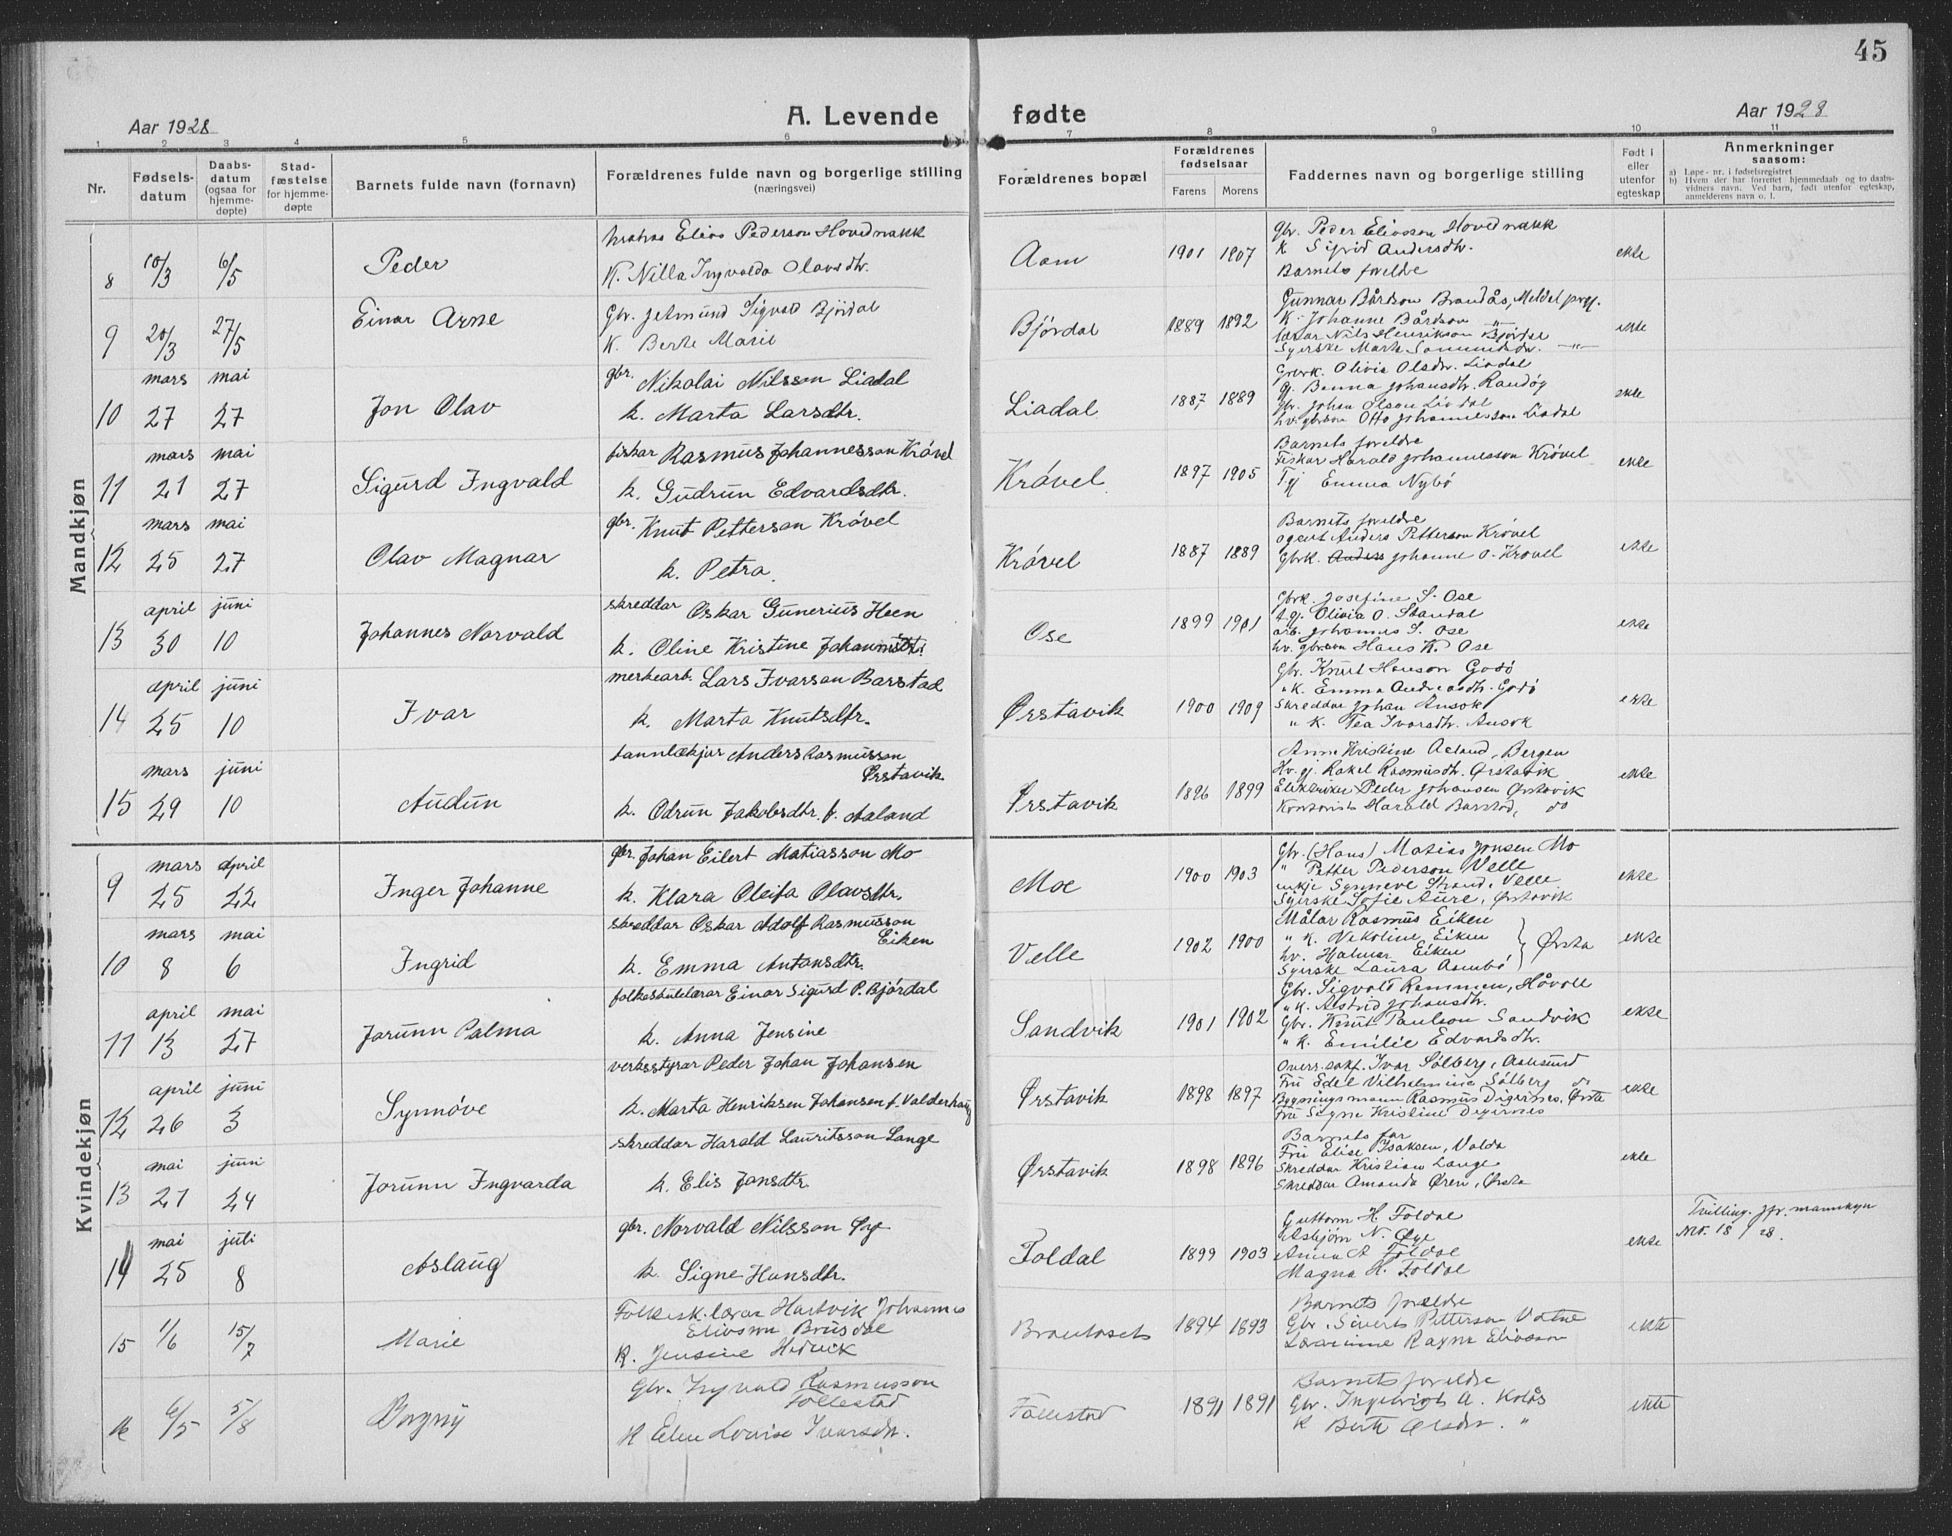 45
Aar 1928
A. Levende fødte
Aar 1928
1 2 3 4 5 6 7 8 9 10 11
Nr.
Fødsels-
datum
Daabs-
datum
(ogsaa for
hjemme-
døpte)
Stad-
fæstelse
for hjemme-
døpte
Barnets fulde navn (fornavn)
Forældrenes fulde navn og borgerlige stilling
(næringsvei)
Forældrenes bopæl
Forældrenes
fødselsaar
Farens Morens
Faddernes navn og borgerlige stilling
Født i
eller
utenfor
egteskap
Anmerkninger
saasom:
a) Løpe-nr. i fødselsregistret
b) Hvem der har forrettet hjemmedaab og to daabs-
vidners navn. Ved barn, født utenfor egteskap,
anmelderens navn o. l.
Mandkjøn
8 10/3 6/5 Peder
Elias Pederson Hovdenakk
K. Nilla Ingvalda Olavsdtr.
Aam 1901 1907
gbr. Peder Eliasson Hovdenakk
K Sigrid Andersdtr.
Barnets foreldre
ekte
9 20/3 27/5 Einar Arne
Gbr. Jetmund Sigvald Bjørdal
K. Berte Marie
Bjørdal 1889 1892
Gunnar Bårdson Brandås, Meldal prgj.
K. Johanne Bårdson "
Nils Henrikson Bjørdal
Syerske Marta
ekte
10 mars 27 mai 27 Jon Olav
gbr. Nikolai Nilsson Liadal
k. Marta Larsdtr.
Liadal 1887 1889
Gbrk. Olivia Olsdr. Liadal
g. Benna Johansdtr. Randøy
gbr. Johan Olson Liadal
hv. gbrson Otto Johannesson Liadal
ekte
11 mars 21 mai 27 Sigurd Ingvald
fiskar Rasmus Johannesson Krøvel
k. Gudrun Edvardsdtr.
Krøvel 1897 1905
Barnets foreldre
Fiskar Harald Johannesson Krøvel
Tj Emma Nybø
ekte
12 mars 25 mai 27 Olav Magnar
gbr. Knut Petterson Krøvel
k. Petra
Krøvel 1887 1889
Barnets foreldre
agent Anders Petterson Krøvel
Gbrk. Johanne O. Krøvel
ekte
13 april 30 juni 10 Johannes Norvald
skreddar Oskar Gunerius Heen
k. Oline Kristine
Ose 1899 1901
Gbrk. Josefine S. Ose
Olivia O. Standal
arb. Johannes S. Ose
hv. gbrson Hans K. Ose
ekte
14 april 25 juni 10 Ivar
Lars Ivarson Barstad
k. Marta Knutsdtr.
Ørstavik 1900 1909
Gbr. Knut Hanson Godø
" K. Emma Andreasdtr. Godø
Skreddar Johan Aasok
" K. Tea Ivarsdtr. Aasok
ekte
15 mars 29 juni 10 Audun
tannlækjar Anders Rasmusson
Ørstavik
k. Odrun Jakobsdtr. f. Aaland
Ørstavik 1896 1899
Anne Kristine Aaland, Bergen
Hv. gj. Rakel Rasmusdtr. Ørstavik
Elektriker Peder Johansen Ørstavik
Kontorist Harald Barstad, do
ekte
Kvindekjøn
9 mars 25 april 22 Inger Johanne
gbr. Johan Eilert Matiasson Mo
k. Klara Oleifa Olavsdtr.
Moe 1900 1903
Gbr. (Hans) Matias Jonsen Mo
" Petter Pederson Velle
enkje Synneve Strand, Velle
Syerske Sofie Aure, Ørstavik
ekte
10 mars 8 mai 6 Ingrid
skreddar Oskar Adolf Rasmusson
Eiken
k. Emma Antonsdtr.
Velle 1902 1900
Målar Rasmus Eiken
" K. Nikoline Eiken
hv. Halmar Eiken
Syerske Laura Aambø
Ørsta
ekte
11 april 13 mai 27 Jorunn Palma
folkeskulelærar Einar Sigurd P. Bjørdal
k. Anna Jensine
Sandvik 1901 1902
Gbr. Sigvald Rammen, Håvoll
" K. Astrid Johansdtr.
Gbr. Knut Paulson Sandvik
" K. Emilie Edvardsdtr.
ekte
12 april 26 juni 3 Synnøve
verksstyrar Peder Johan Johansen
k. Marta Henriksen Johansen f. Valderhaug
Ørstavik 1898 1897
Overr.sakf. Ivar Sølberg, Aalesund
Fru Edel Vilhelmine Sølberg do
Bygningsmann Rasmus Digernes, Ørsta
Fru Signe Kristine Digernes
ekte
13 mai 21 juni 24 Jorunn Ingvarda
skreddar Harald Lauritsson Lange
k. Elis Jonsdtr.
Ørstavik 1898 1896
Barnets far
Fru Elise Isaksen, Volda
Skreddar Kristian Lange
Skreddar Amanda Øren, Ørsta
ekte
14 mai 25 juli 8 Aslaug
gbr. Norvald Nilsson Øye
k. Signe Hansdtr.
Foldal 1899 1903
Guttorm H. Foldal
Asbjørn N. Øye
Anna A Foldal
Magna H. Foldal
ekte
Tvilling. jfr. mannkyn
Nr. 18/28.
15 1/6 15/7 Marie
Folkesk.lærar Hartvik Johannes
Eliasson Brusdal
K. Jensine Hedvik
1894 1893
Barnets foreldre
Gbr. Sivert Petterson Vatne
Lærarinne Ragna Eliasson
ekte
16 6/5 5/8 Borgny
Gbr. Ingvald Rasmusson
Follestad
K Elen Lovise Ivarsdtr.
Follestad 1891 1891
Barnets foreldre
Gbr. Ingebrigt A. Kolås
K Berte Olsdtr. "
ekte